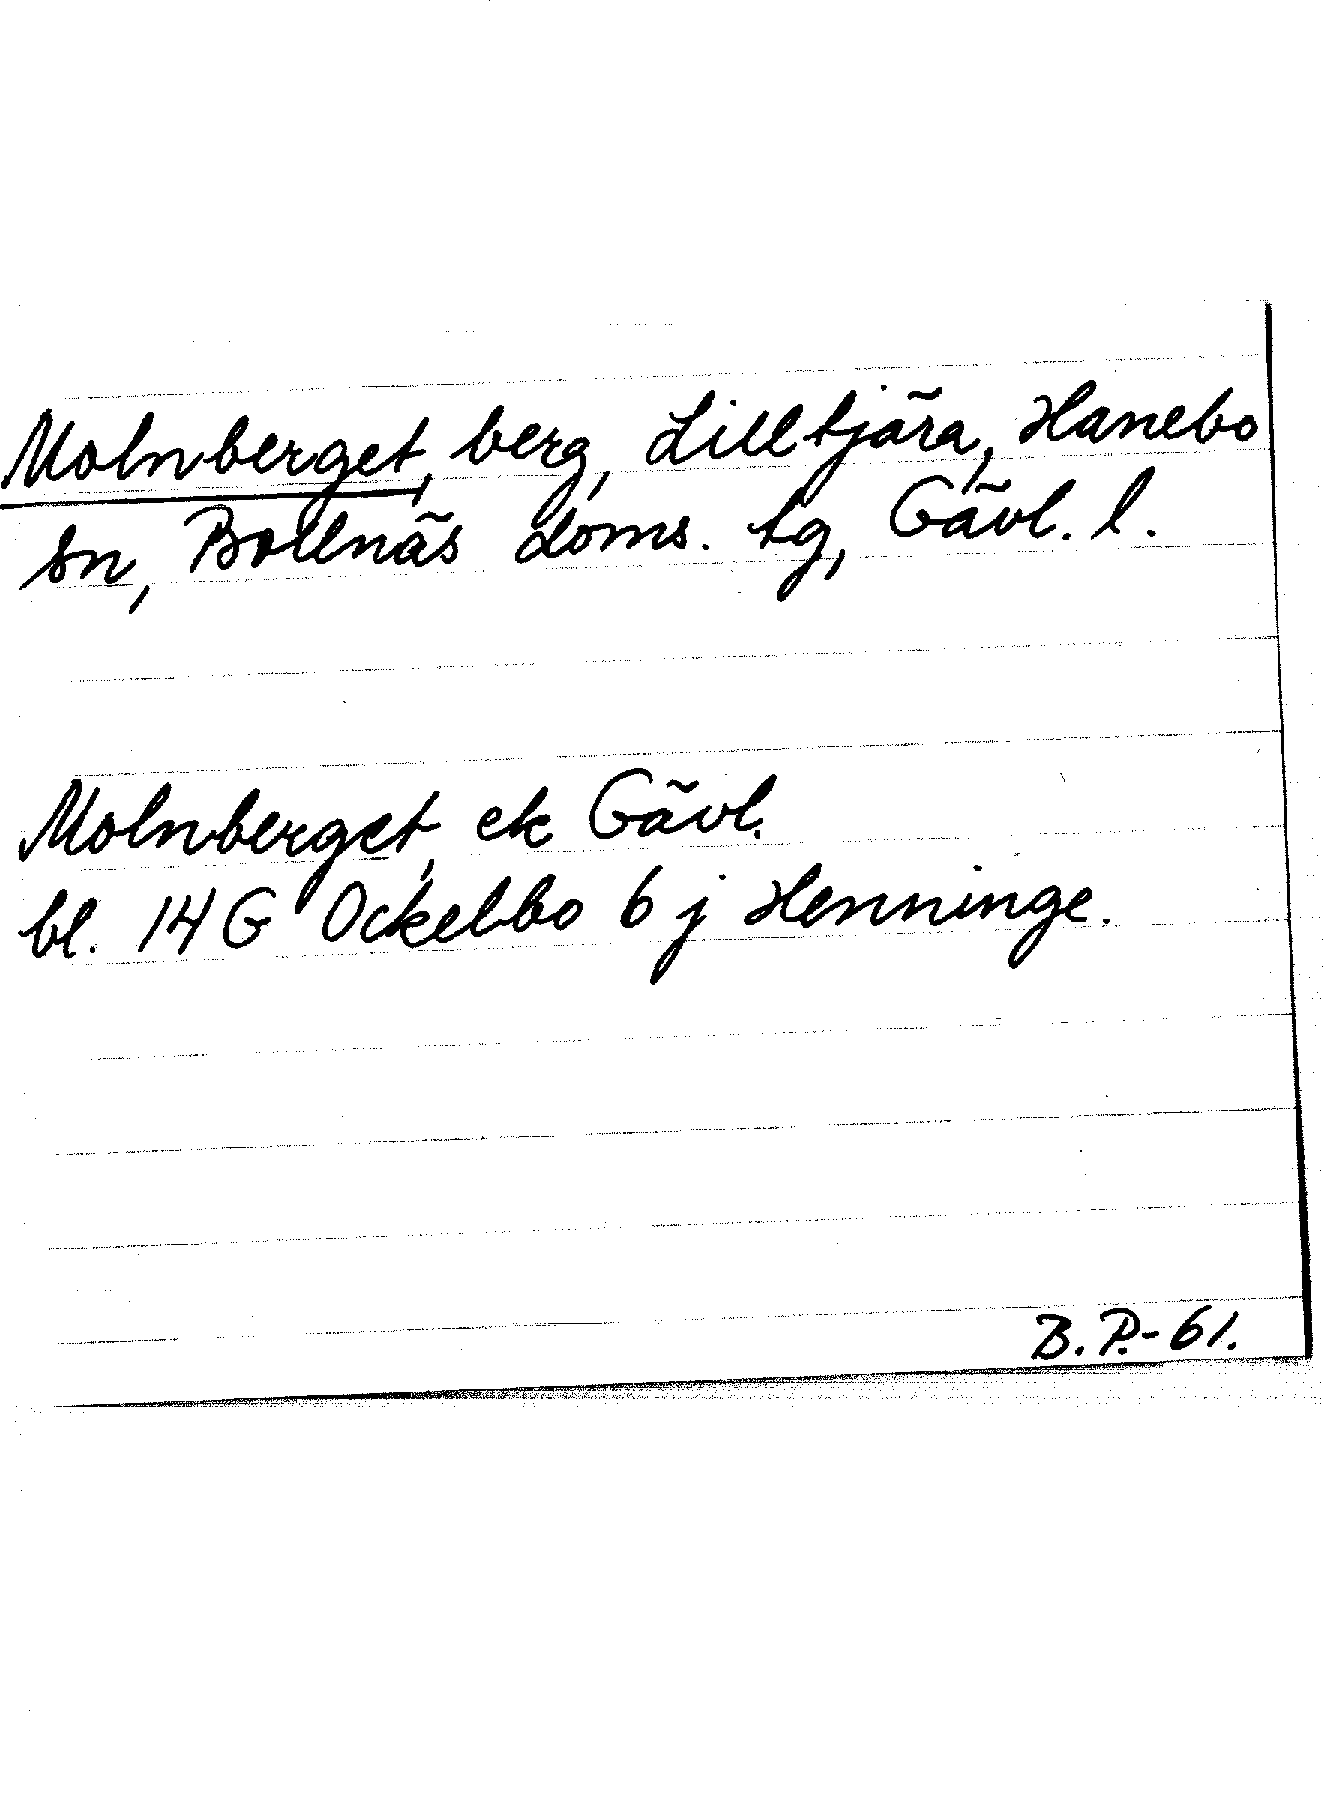 Molnberget, berg, Lilltjära, Hanebo
sn, Bollnäs doms. tg, Gävl. l.
Molnberget, ek Gävl.
bl. 14 G Ockelbo 6 j Henninge.
B.P.-61.